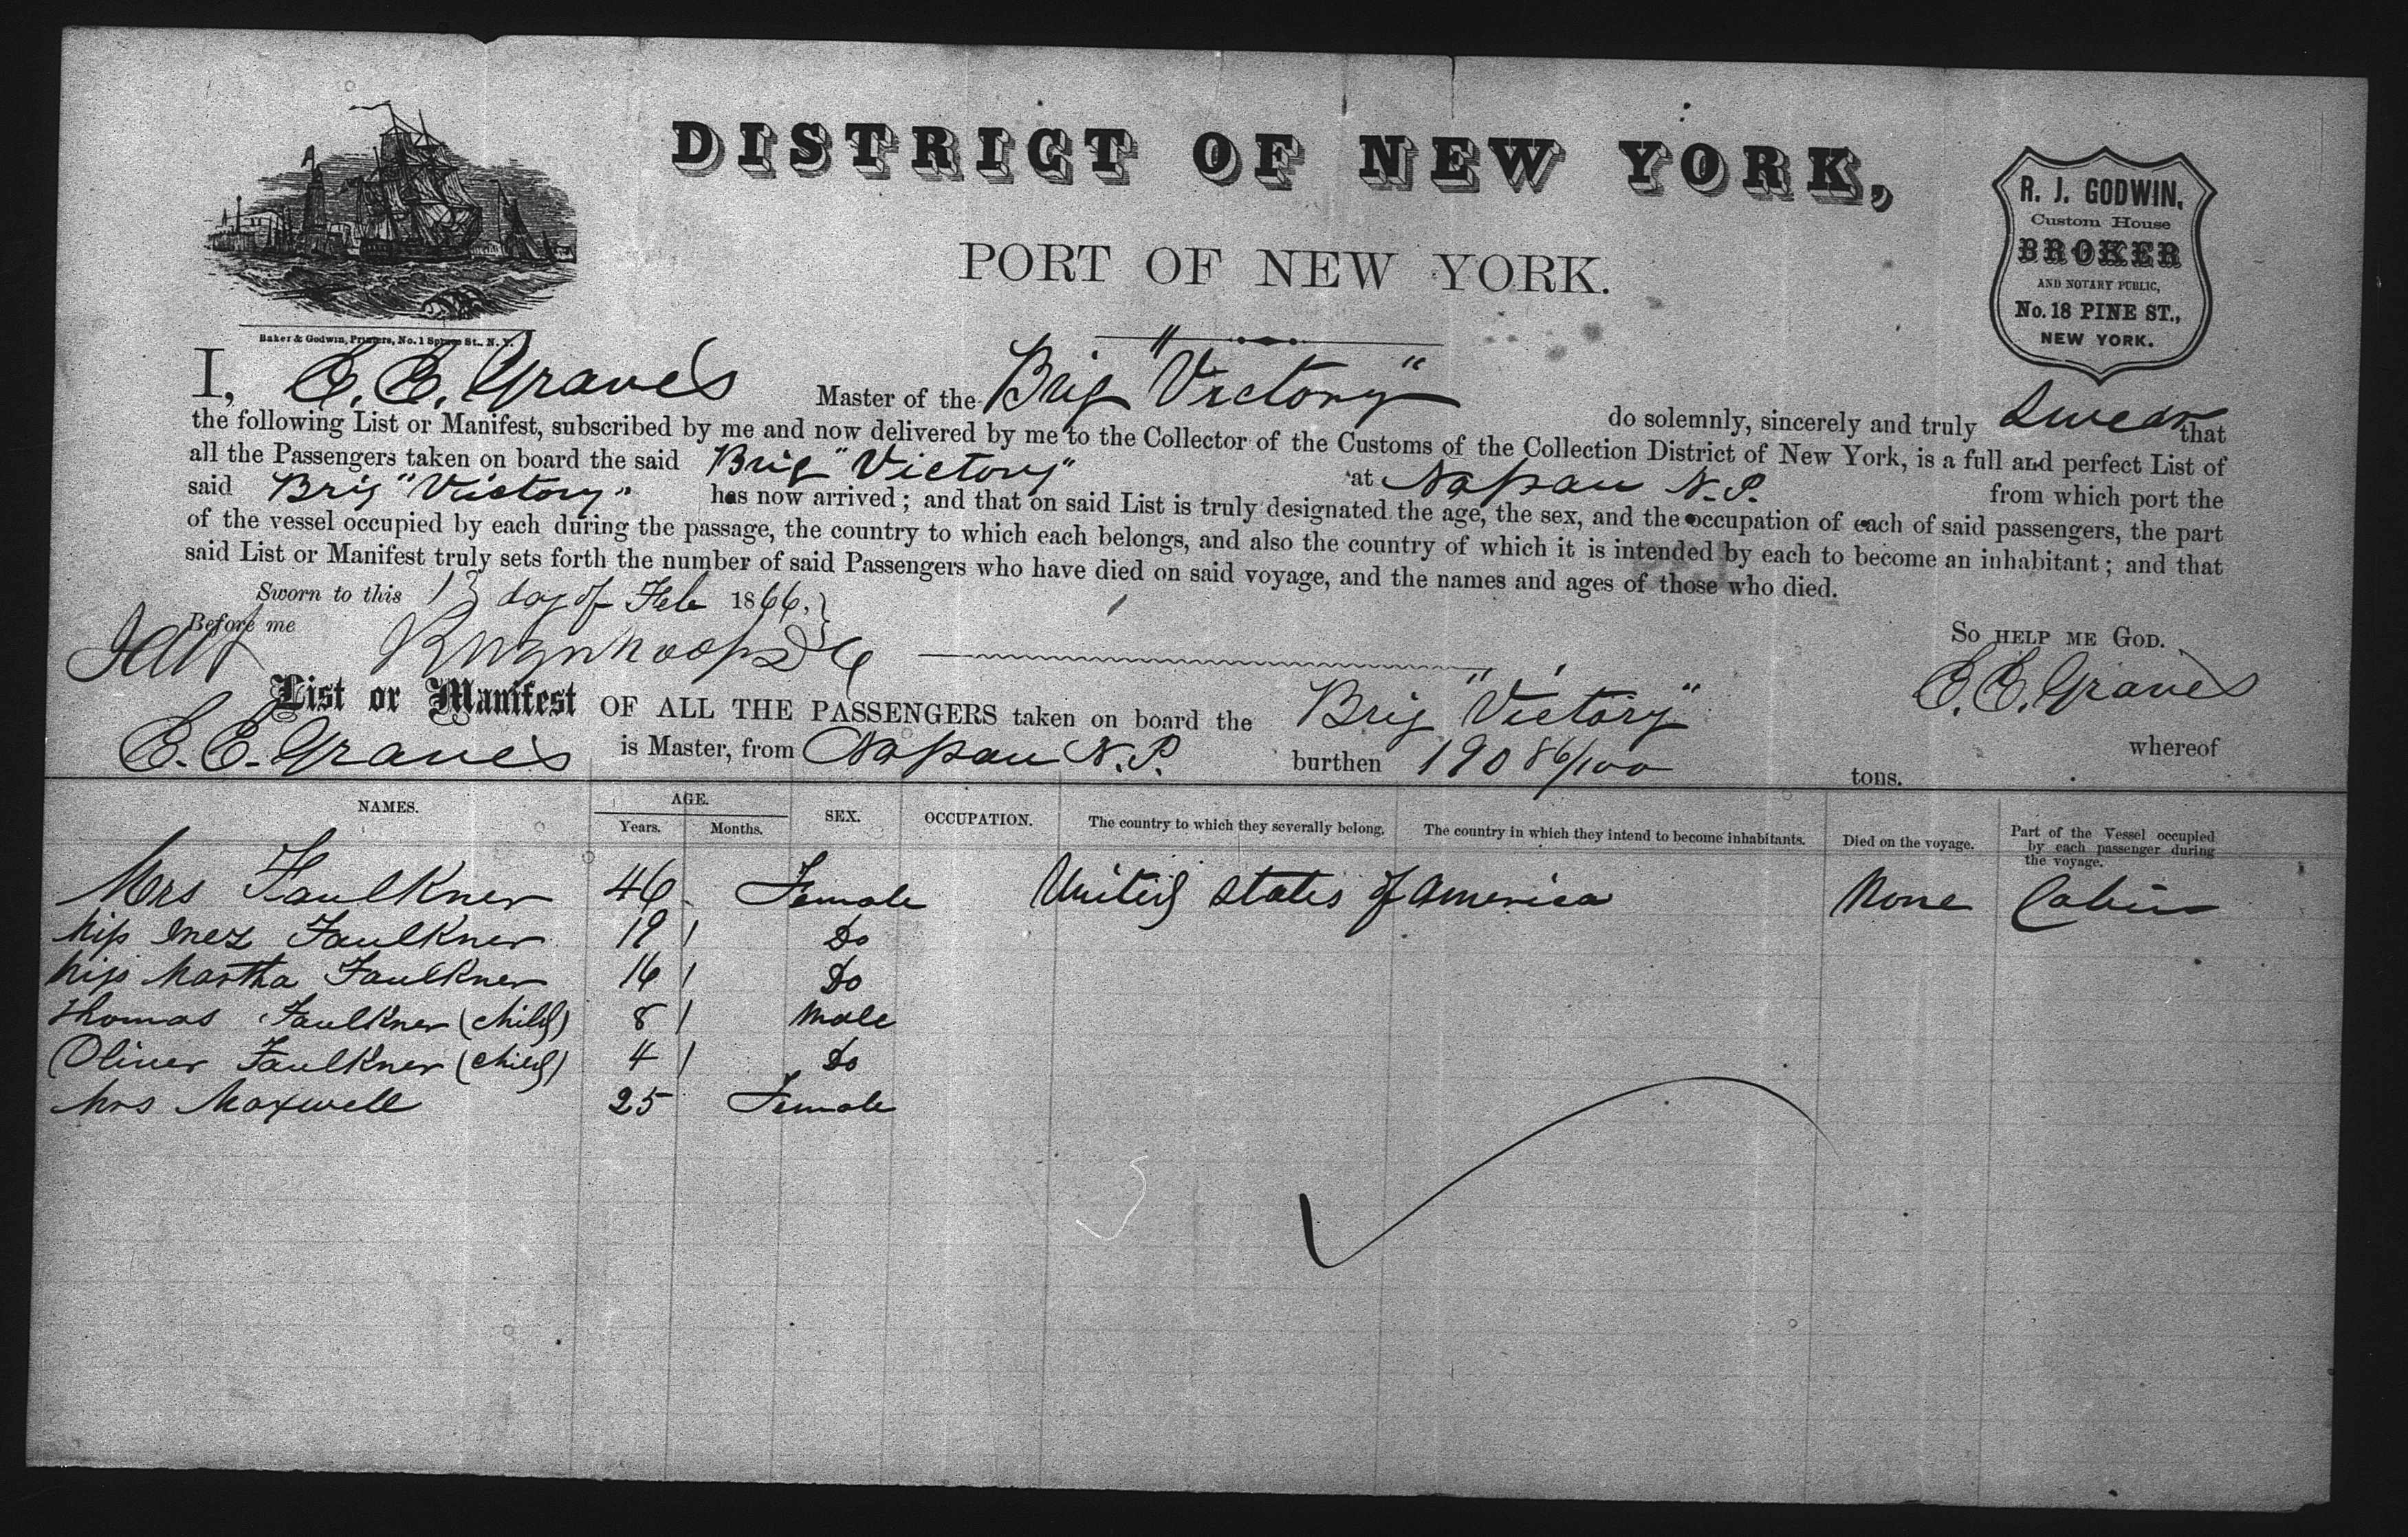 DISTRICT OF NEW YORK,
PORT OF NEW YORK.
R. J. GODWIN,
Custom House
BROKER
AND NOTARY PUBLIC,
No. 18 PINE ST.,
NEW YORK.
Baker & Godwin, Printers, No. 1 Spruce St., N. Y.
I, E. E. Graves Master of the Brig "Victory" do solemnly, sincerely and truly Swear that
the following List or Manifest, subscribed by me and now delivered by me to the Collector of the Customs of the Collection District of New York, is a full and perfect List of
all the Passengers taken on board the said Brig "Victory" at Nassau N. P. from which port the
said Brig "Victory" has now arrived; and that on said List is truly designated the age, the sex, and the occupation of each of said passengers, the part
of the vessel occupied by each during the passage, the country to which each belongs, and also the country of which it is intended by each to become an inhabitant; and that
said List or Manifest truly sets forth the number of said Passengers who have died on said voyage, and the names and ages of those who died.
Sworn to this 13 day of Feb 1866,
Before me
So help me God.
E. E. Graves
List or Manifest OF ALL THE PASSENGERS taken on board the Brig "Victory" whereof
E. E. Graves is Master, from Nassau N. P. burthen 190 86/100 tons.
NAMES. AGE. SEX. OCCUPATION. The country to which they severally belong. The country in which they intend to become inhabitants. Died on the voyage. Part of the Vessel occupied by each passenger during the voyage.
Years. Months.
Mrs Faulkner 46 Female United States of America None Cabin
Miss Inez Faulkner 19 / Do
Miss Martha Faulkner 16 / Do
Thomas Faulkner (child) 8 / Male
Oliver Faulkner (child) 4 / Do
Mrs Maxwell 25 Female